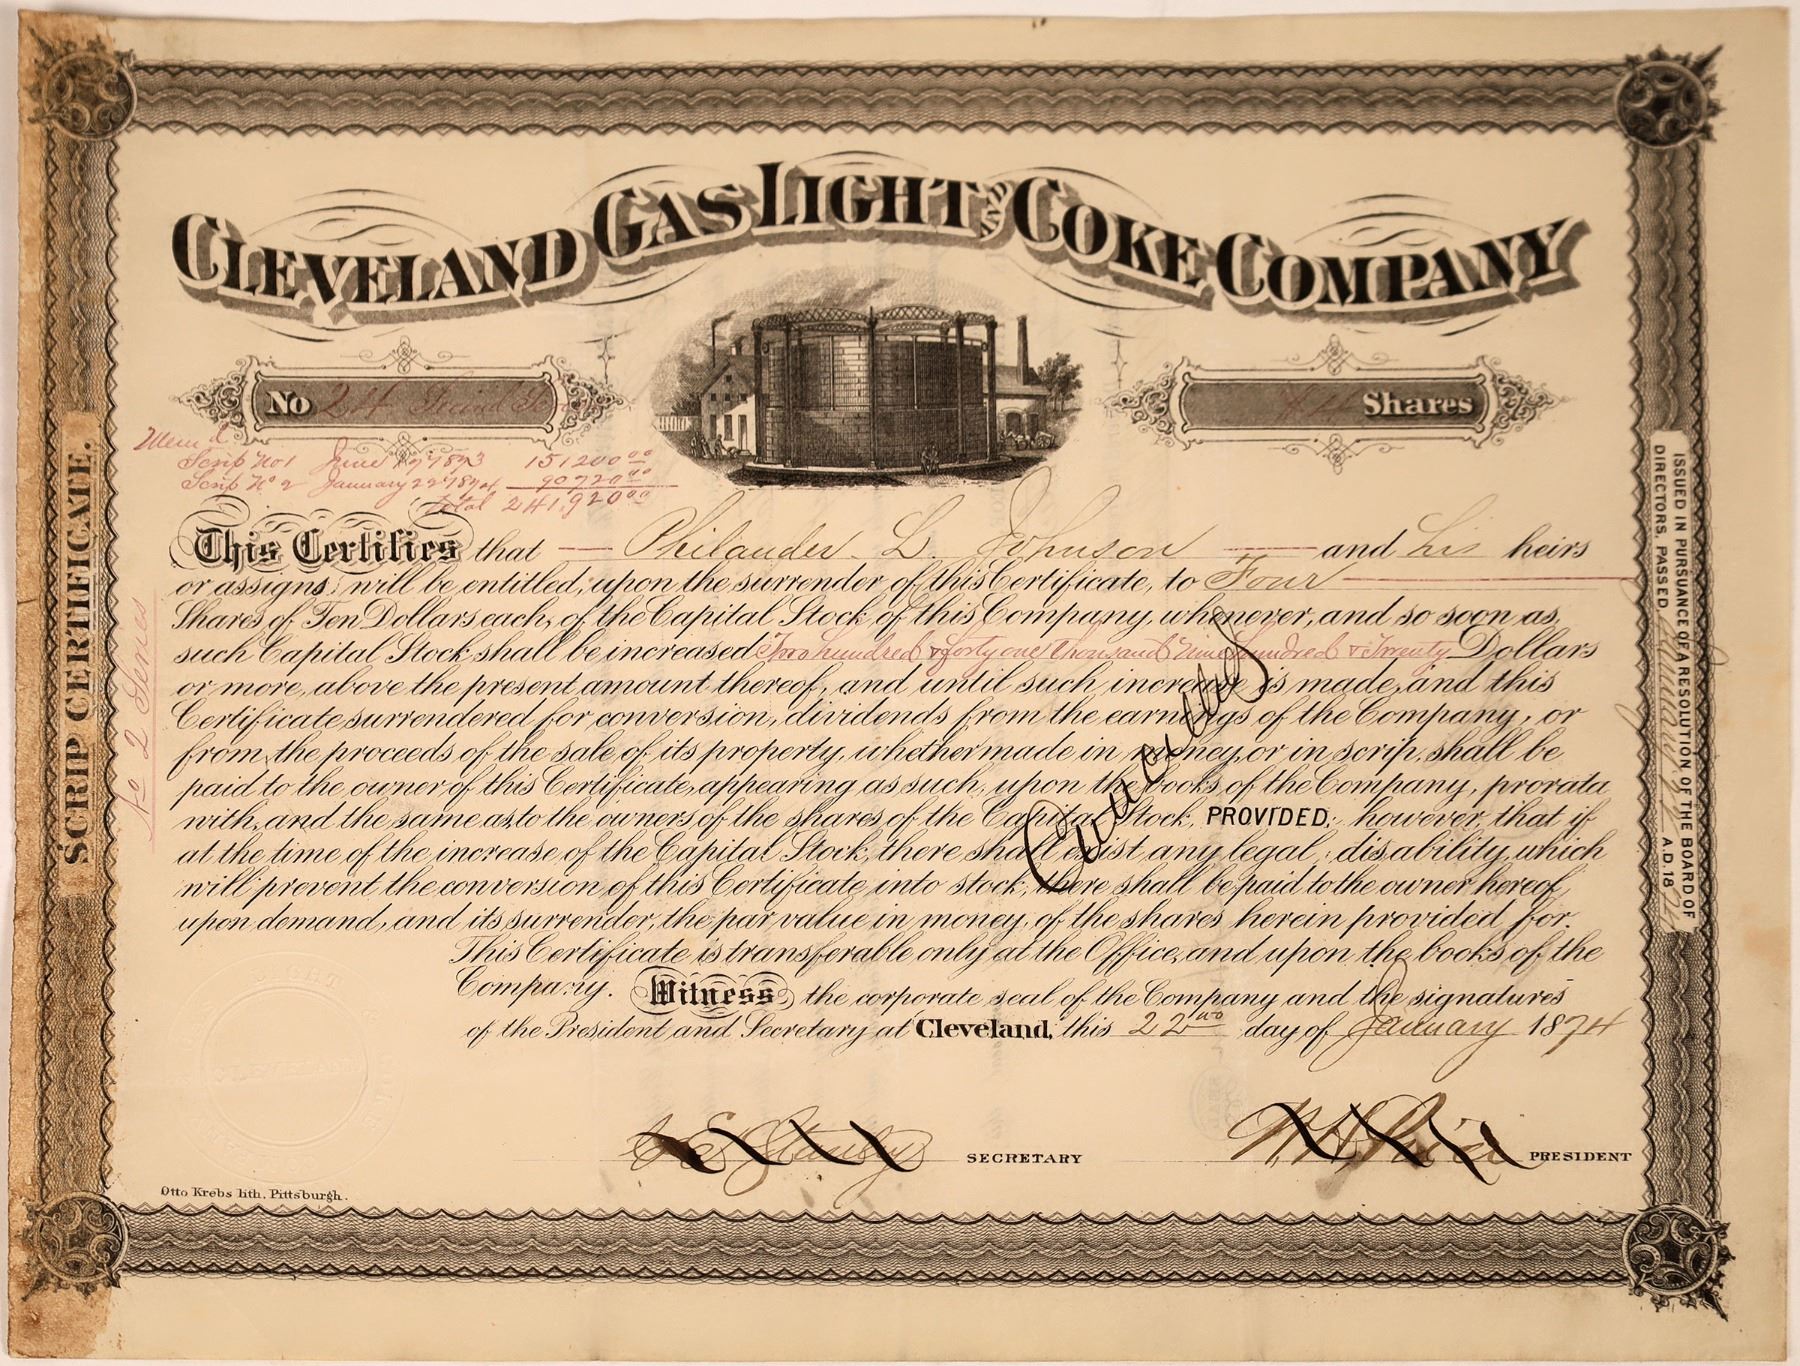 CLEVELAND GAS LIGHT AND COKE COMPANY
No 24 Second Series
Shares
Mem'd
Scrip No 1 June 19" 1873 151200 00
Scrip No 2 January 22" 1874 90720 00
total 241,920 00
This Certifies that Philander L. Johnson and his heirs
or assigns, will be entitled, upon the surrender of this Certificate, to Four
Shares of Ten Dollars each, of the Capital Stock of this Company, whenever, and so soon as
such Capital Stock shall be increased Two hundred & forty one thousand Nine hundred & Twenty Dollars
or more, above the present amount thereof, and until such increase is made, and this
Certificate surrendered for conversion, dividends from the earnings of the Company, or
from the proceeds of the sale of its property, whether made in money, or in scrip, shall be
paid to the owner of this Certificate, appearing as such, upon the books of the Company, prorata
with, and the same as, to the owners of the shares of the Capital Stock, PROVIDED, however, that if
at the time of the increase of the Capital Stock, there shall exist any legal disability, which
will prevent the conversion of this Certificate into stock, there shall be paid to the owner hereof,
upon demand, and its surrender, the par value in money, of the shares herein provided for.
This Certificate is transferable only at the Office, and upon the books of the
Company. Witness the corporate seal of the Company and the signatures
of the President and Secretary at Cleveland, this 22nd day of January 1874
Cancelled
SECRETARY
PRESIDENT
Otto Krebs lith, Pittsburgh.
SCRIP CERTIFICATE.
No 2 Series
ISSUED IN PURSUANCE OF A RESOLUTION OF THE BOARD OF
DIRECTORS, PASSED January A.D. 1874
CLEVELAND